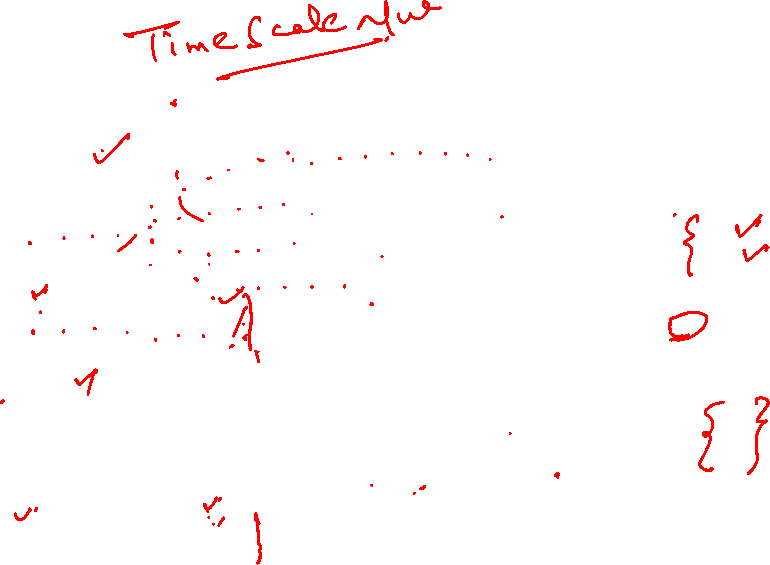 Time Scale
{
{ }